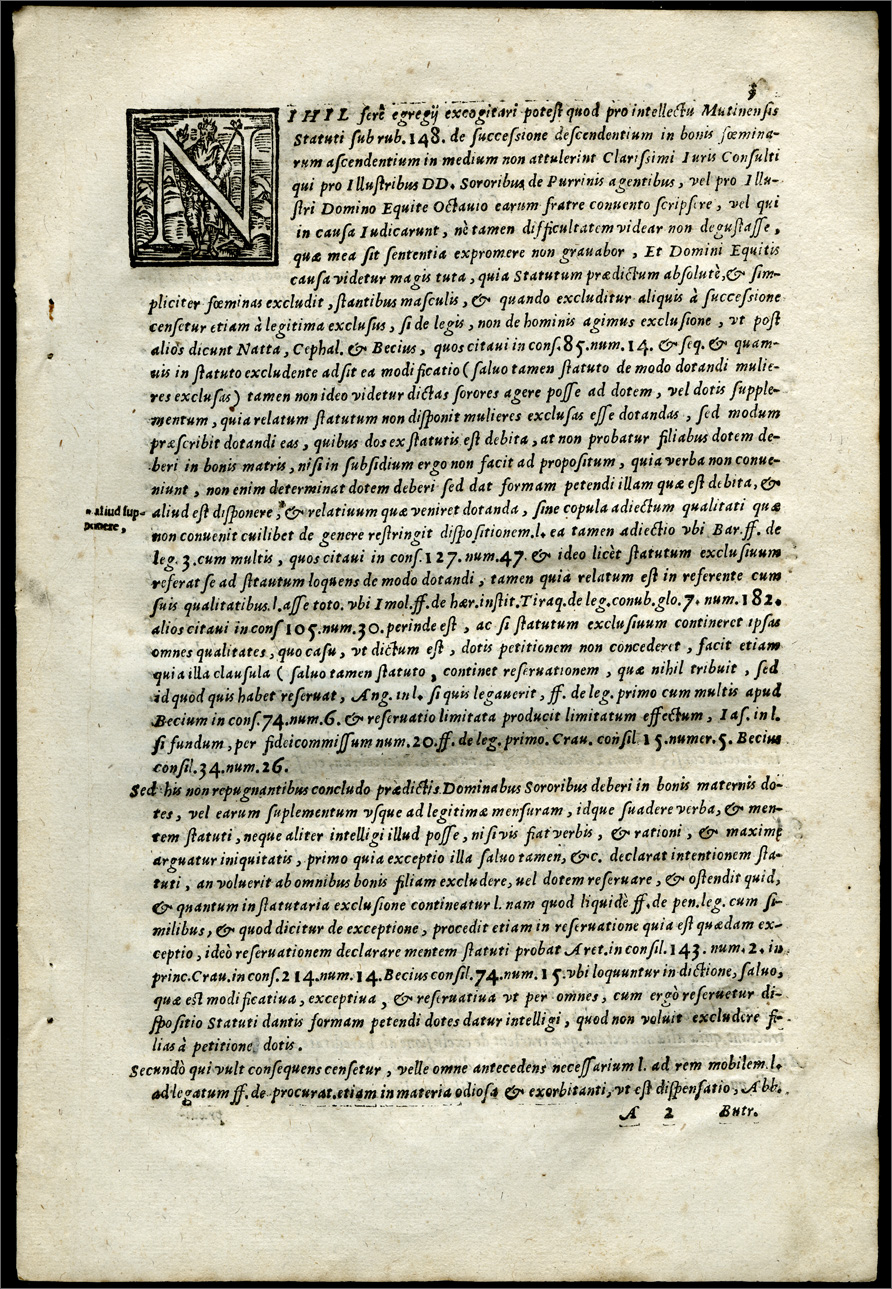 3
NIHIL ferè egregij excogitari potest quod pro intellectu Mutinensis
Statuti sub rub. 148. de successione descendentium in bonis fœmina-
rum ascendentium in medium non attulerint Clarissimi Iuris Consulti
qui pro Illustribus DD. Sororibus de Purrinis agentibus, vel pro Illu-
stri Domino Equite Octauio earum fratre conuento scripsere, vel qui
in causa Iudicarunt, nè tamen difficultatem videar non degustasse,
quæ mea sit sententia expromere non grauabor, Et Domini Equitis
causa videtur magis tuta, quia Statutum prædictum absolutè, & sim-
pliciter fœminas excludit, stantibus masculis, & quando excluditur aliquis à successione
censetur etiam à legitima exclusus, si de legis, non de hominis agimus exclusione, vt post
alios dicunt Natta, Cephal. & Becius, quos citaui in cons. 85. num. 14. & seq. & quam-
uis in statuto excludente adsit ea modificatio (saluo tamen statuto de modo dotandi mulie-
res exclusas) tamen non ideo videtur dictas sorores agere posse ad dotem, vel dotis supple-
mentum, quia relatum statutum non disponit mulieres exclusas esse dotandas, sed modum
præscribit dotandi eas, quibus dos ex statutis est debita, at non probatur filiabus dotem de-
beri in bonis matris, nisi in subsidium ergo non facit ad propositum, quia verba non conue-
niunt, non enim determinat dotem deberi sed dat formam petendi illam quæ est debita, &
" aliud sup-
ponere,
aliud est disponere,* & relatiuum quæ veniret dotanda, sine copula adiectum qualitati quæ
non conuenit cuilibet de genere restringit dispositionem. l. ea tamen adiectio vbi Bar. ff. de
leg. 3. cum multis, quos citaui in cons. 127. num. 47. & ideo licèt statutum exclusiuum
referat se ad stautum loquens de modo dotandi, tamen quia relatum est in referente cum
suis qualitatibus. l. asse toto. vbi Imol. ff. de hær. instit. Tiraq. de leg. conub. glo. 7. num. 182.
alios citaui in cons 105. num. 30. perinde est, ac si statutum exclusiuum contineret ipsas
omnes qualitates, quo casu, vt dictum est, dotis petitionem non concederet, facit etiam
quia illa clausula ( saluo tamen statuto, continet reseruationem, quæ nihil tribuit, sed
id quod quis habet reseruat, Ang. in l. si quis legauerit, ff. de leg. primo cum multis apud
Becium in cons. 74. num. 6. & reseruatio limitata producit limitatum effectum, Ias. in l.
si fundum, per fideicommissum num. 20. ff. de leg. primo. Crau. consil 15. numer. 5. Becius
consil. 34. num. 26.
Sed his non repugnantibus concludo prædictis Dominabus Sororibus deberi in bonis maternis do-
tes, vel earum suplementum vsque ad legitimæ mensuram, idque suadere verba, & men-
tem statuti, neque aliter intelligi illud posse, nisi vis fiat verbis, & rationi, & maximę
arguatur iniquitatis, primo quia exceptio illa saluo tamen, & c. declarat intentionem sta-
tuti, an voluerit ab omnibus bonis filiam excludere, uel dotem reseruare, & ostendit quid,
& quantum in statutaria exclusione contineatur l. nam quod liquidè ff. de pen. leg. cum si-
milibus, & quod dicitur de exceptione, procedit etiam in reseruatione quia est quædam ex-
ceptio, ideò reseruationem declarare mentem statuti probat Aret. in consil. 143. num. 2. in
princ. Crau. in cons. 214. num. 14. Becius consil. 74. num. 15. vbi loquuntur in dictione, saluo,
quæ est modificatiua, exceptiua, & reseruatiua vt per omnes, cum ergò reseruetur di-
spositio Statuti dantis formam petendi dotes datur intelligi, quod non voluit excludere fi-
lias à petitione dotis.
Secundò qui vult consequens censetur, velle omne antecedens necessarium l. ad rem mobilem. l.
ad legatum ff. de procurat. etiam in materia odiosa & exorbitanti, vt est dispensatio, Abb.
A 2 Butr.